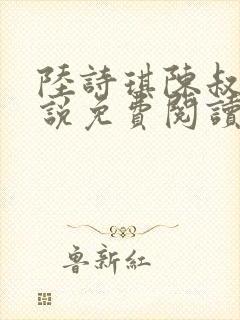 陸詩琪陳叔
說免費閱讀
魯新紅